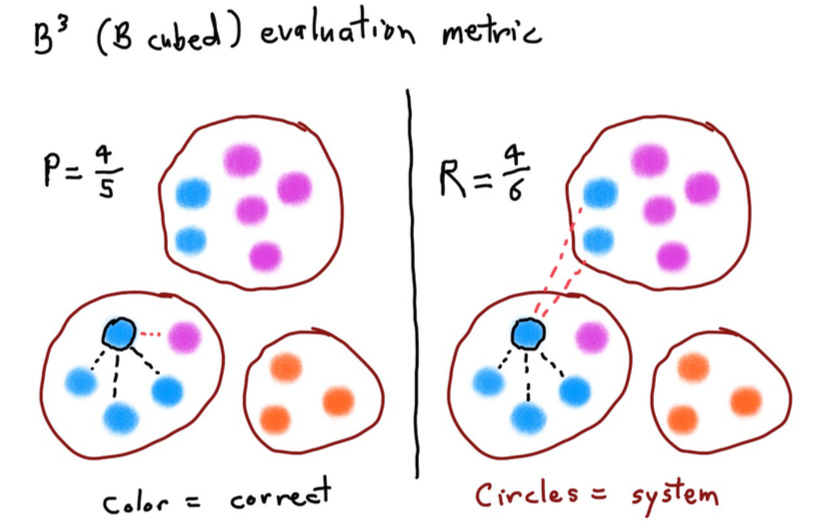 B³ (B cubed) evaluation metric
P = 4/5
R = 4/6
Color = correct
Circles = system